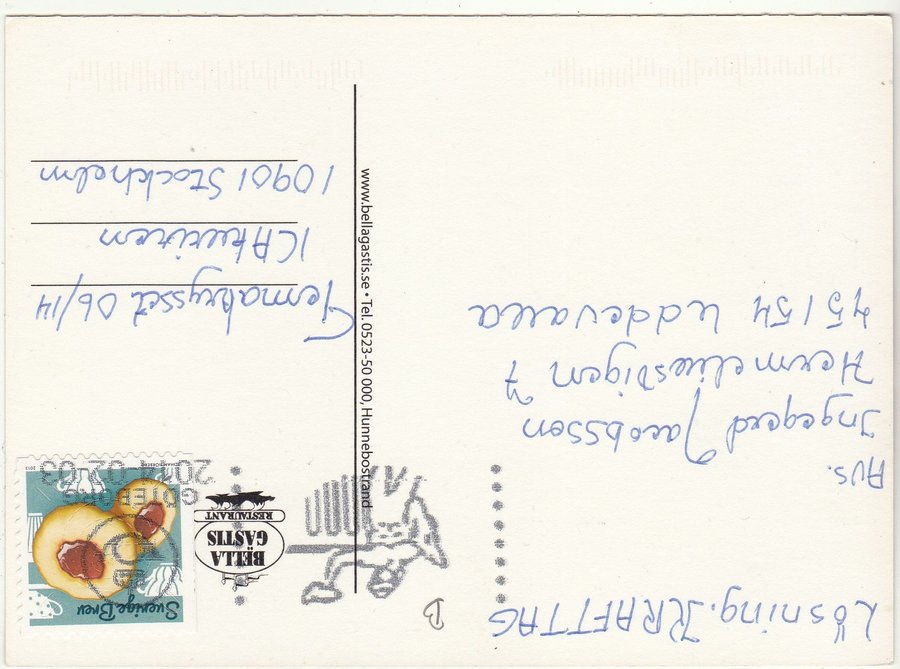 Lösning. KRAFTTAG
B
Avs.
Ingegerd Jacobsson
Hermelinstigen 7
45154 Uddevalla
www.bellagastis.se • Tel. 0523-50 000, Hunnebostrand
BELLA
GASTIS
RESTAURANT
Sverige Brev
2013
GÖTEBORG
2014-02-03
Temakrysset 06/14
ICAkuriren
10901 Stockholm